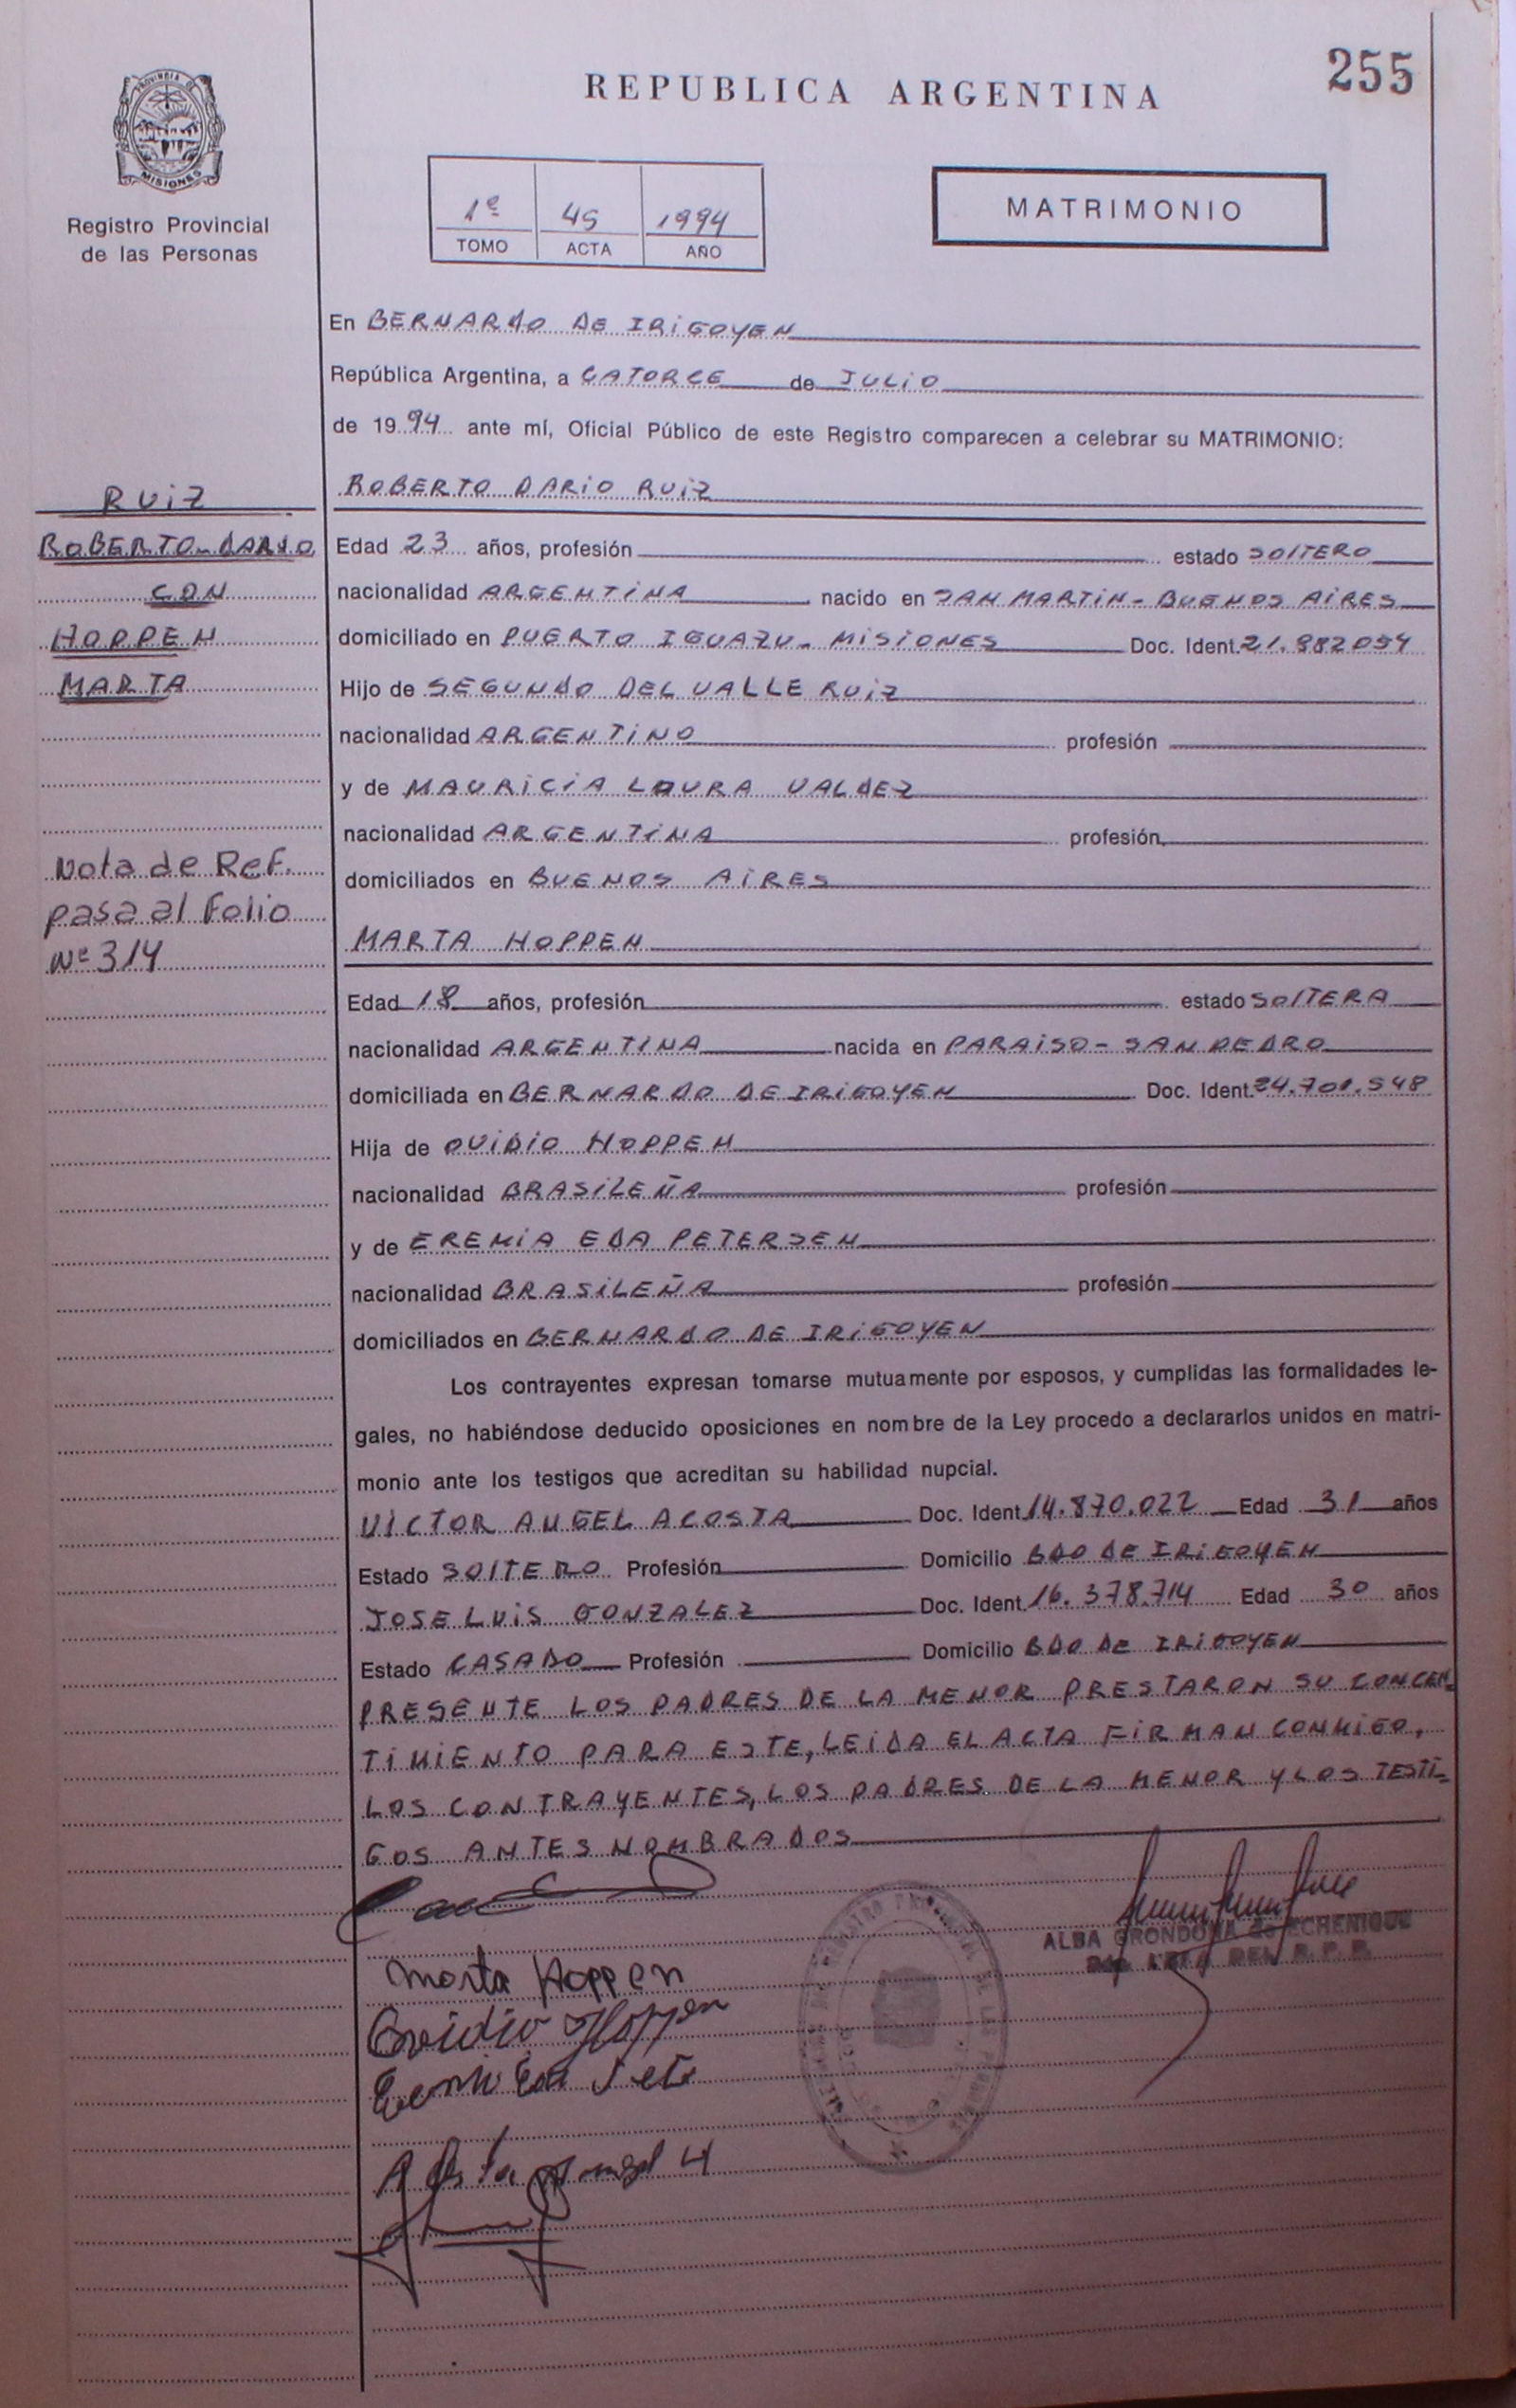 255
REPUBLICA ARGENTINA
PROVINCIA DE
MISIONES
Registro Provincial
de las Personas
1º 45 1994
TOMO ACTA AÑO
MATRIMONIO
En BERNARDO DE IRIGOYEN
República Argentina, a CATORCE de JULIO
de 1994 ante mí, Oficial Público de este Registro comparecen a celebrar su MATRIMONIO:
RUIZ
ROBERTO DARIO
CON
HOPPEN
MARTA
Nota de Ref.
pasa al Folio
Nº 314
ROBERTO DARIO RUIZ
Edad 23 años, profesión estado SOLTERO
nacionalidad ARGENTINA nacido en SAN MARTIN - BUENOS AIRES
domiciliado en PUERTO IGUAZU - MISIONES Doc. Ident.
Hijo de SEGUNDO DEL VALLE RUIZ
nacionalidad ARGENTINO profesión
y de MAURICIA LAURA VALDEZ
nacionalidad ARGENTINA profesión
domiciliados en BUENOS AIRES
MARTA HOPPEN
Edad 18 años, profesión estado SOLTERA
nacionalidad ARGENTINA nacida en PARAISO - SAN PEDRO
domiciliada en BERNARDO DE IRIGOYEN Doc. Ident.
Hija de OVIDIO HOPPEN
nacionalidad BRASILEÑA profesión
y de EREMIA EDA PETERSEN
nacionalidad BRASILEÑA profesión
domiciliados en BERNARDO DE IRIGOYEN
Los contrayentes expresan tomarse mutuamente por esposos, y cumplidas las formalidades le-
gales, no habiéndose deducido oposiciones en nombre de la Ley procedo a declararlos unidos en matri-
monio ante los testigos que acreditan su habilidad nupcial.
VICTOR ANGEL ACOSTA Doc. Ident. 14.870.022 Edad 31 años
Estado SOLTERO Profesión Domicilio BDO DE IRIGOYEN
JOSE LUIS GONZALEZ Doc. Ident. 16.378.714 Edad 30 años
Estado CASADO Profesión Domicilio BDO DE IRIGOYEN
PRESENTE LOS PADRES DE LA MENOR PRESTARON SU CONCEN-
TIMIENTO PARA ESTE, LEIDA EL ACTA FIRMAN CONMIGO,
LOS CONTRAYENTES, LOS PADRES DE LA MENOR Y LOS TESTI-
GOS ANTES NOMBRADOS
ALBA GRONDONA de ECHENIQUE
DEL R. P. P.
Marta Hoppen
Ovidio Hoppen